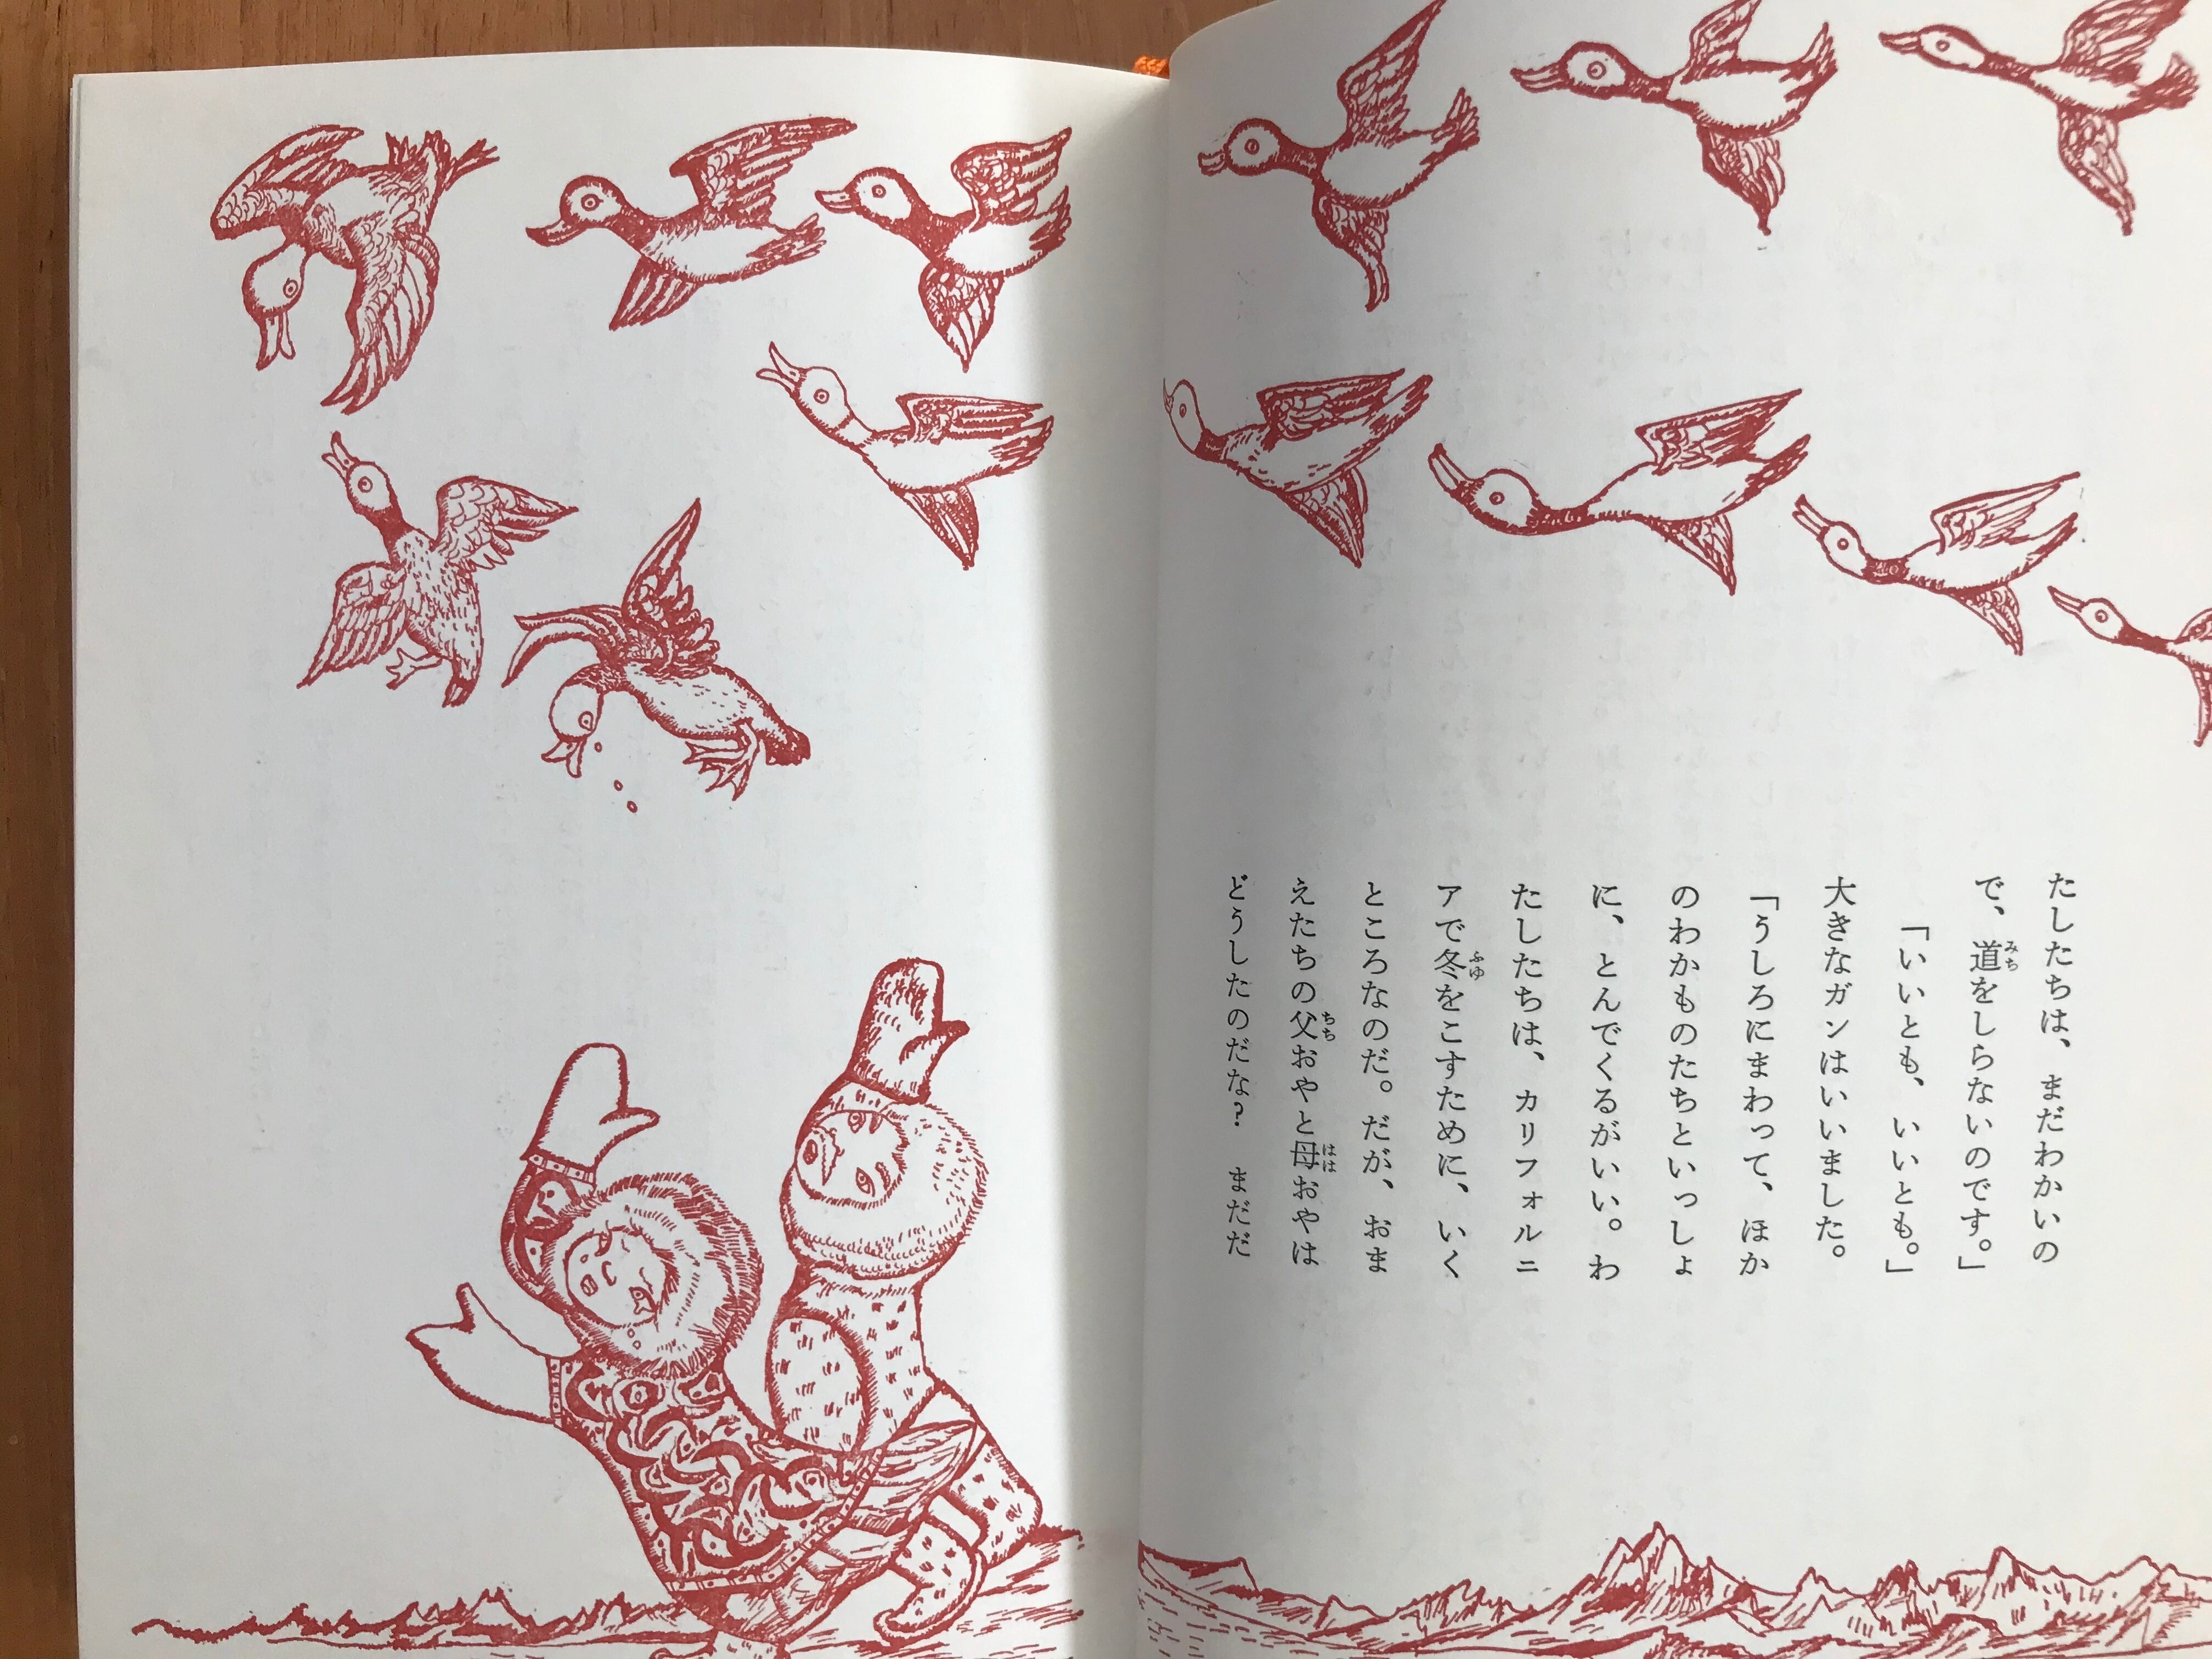 たしたちは、まだわかいの
で、道をしらないのです。」
「いいとも、いいとも。」
大きなガンはいいました。
「うしろにまわって、ほか
のわかものたちといっしょ
に、とんでくるがいい。わ
たしたちは、カリフォルニ
アで冬をこすために、いく
ところなのだ。だが、おま
えたちの父おやと母おやは
どうしたのだな？　まだだ